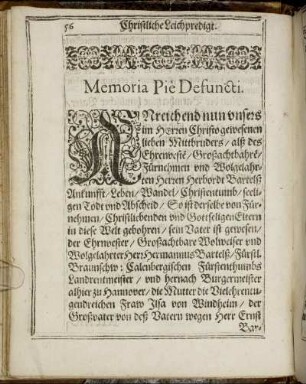 56 Christliche Leichpredigt.
Memoria Piè Defuncti.
ANreichend nun unsers
im Herren Christo gewesenen
lieben Mittbruders / alß deß
Ehrenvest / Großachtbahrē /
Fürnehmen und Wolgelahr-
ten Herren Herbordt Bartelß
Ankunfft / Leben / Wandel / Christenthumb / seeli-
gen Todt und Abscheid / So ist derselbe von Für-
nehmen / Christliebenden und Gottseligen Eltern
in diese Welt gebohren / sein Vater ist gewesen /
der Ehrnvester / Großachtbare Wolweiser und
Wolgelahrter Herr Hermannus Bartelß / Fürstl.
Braunschw: Calenbergischen Fürstenthumbs
Landrentmeister / und hernach Bürgermeister
alhier zu Hannover / die Mutter die Vielehrentu-
gendreichen Fraw Ilsa von Windheim / der
Großvater von deß Vatern wegen Herr Ernst
Bar-